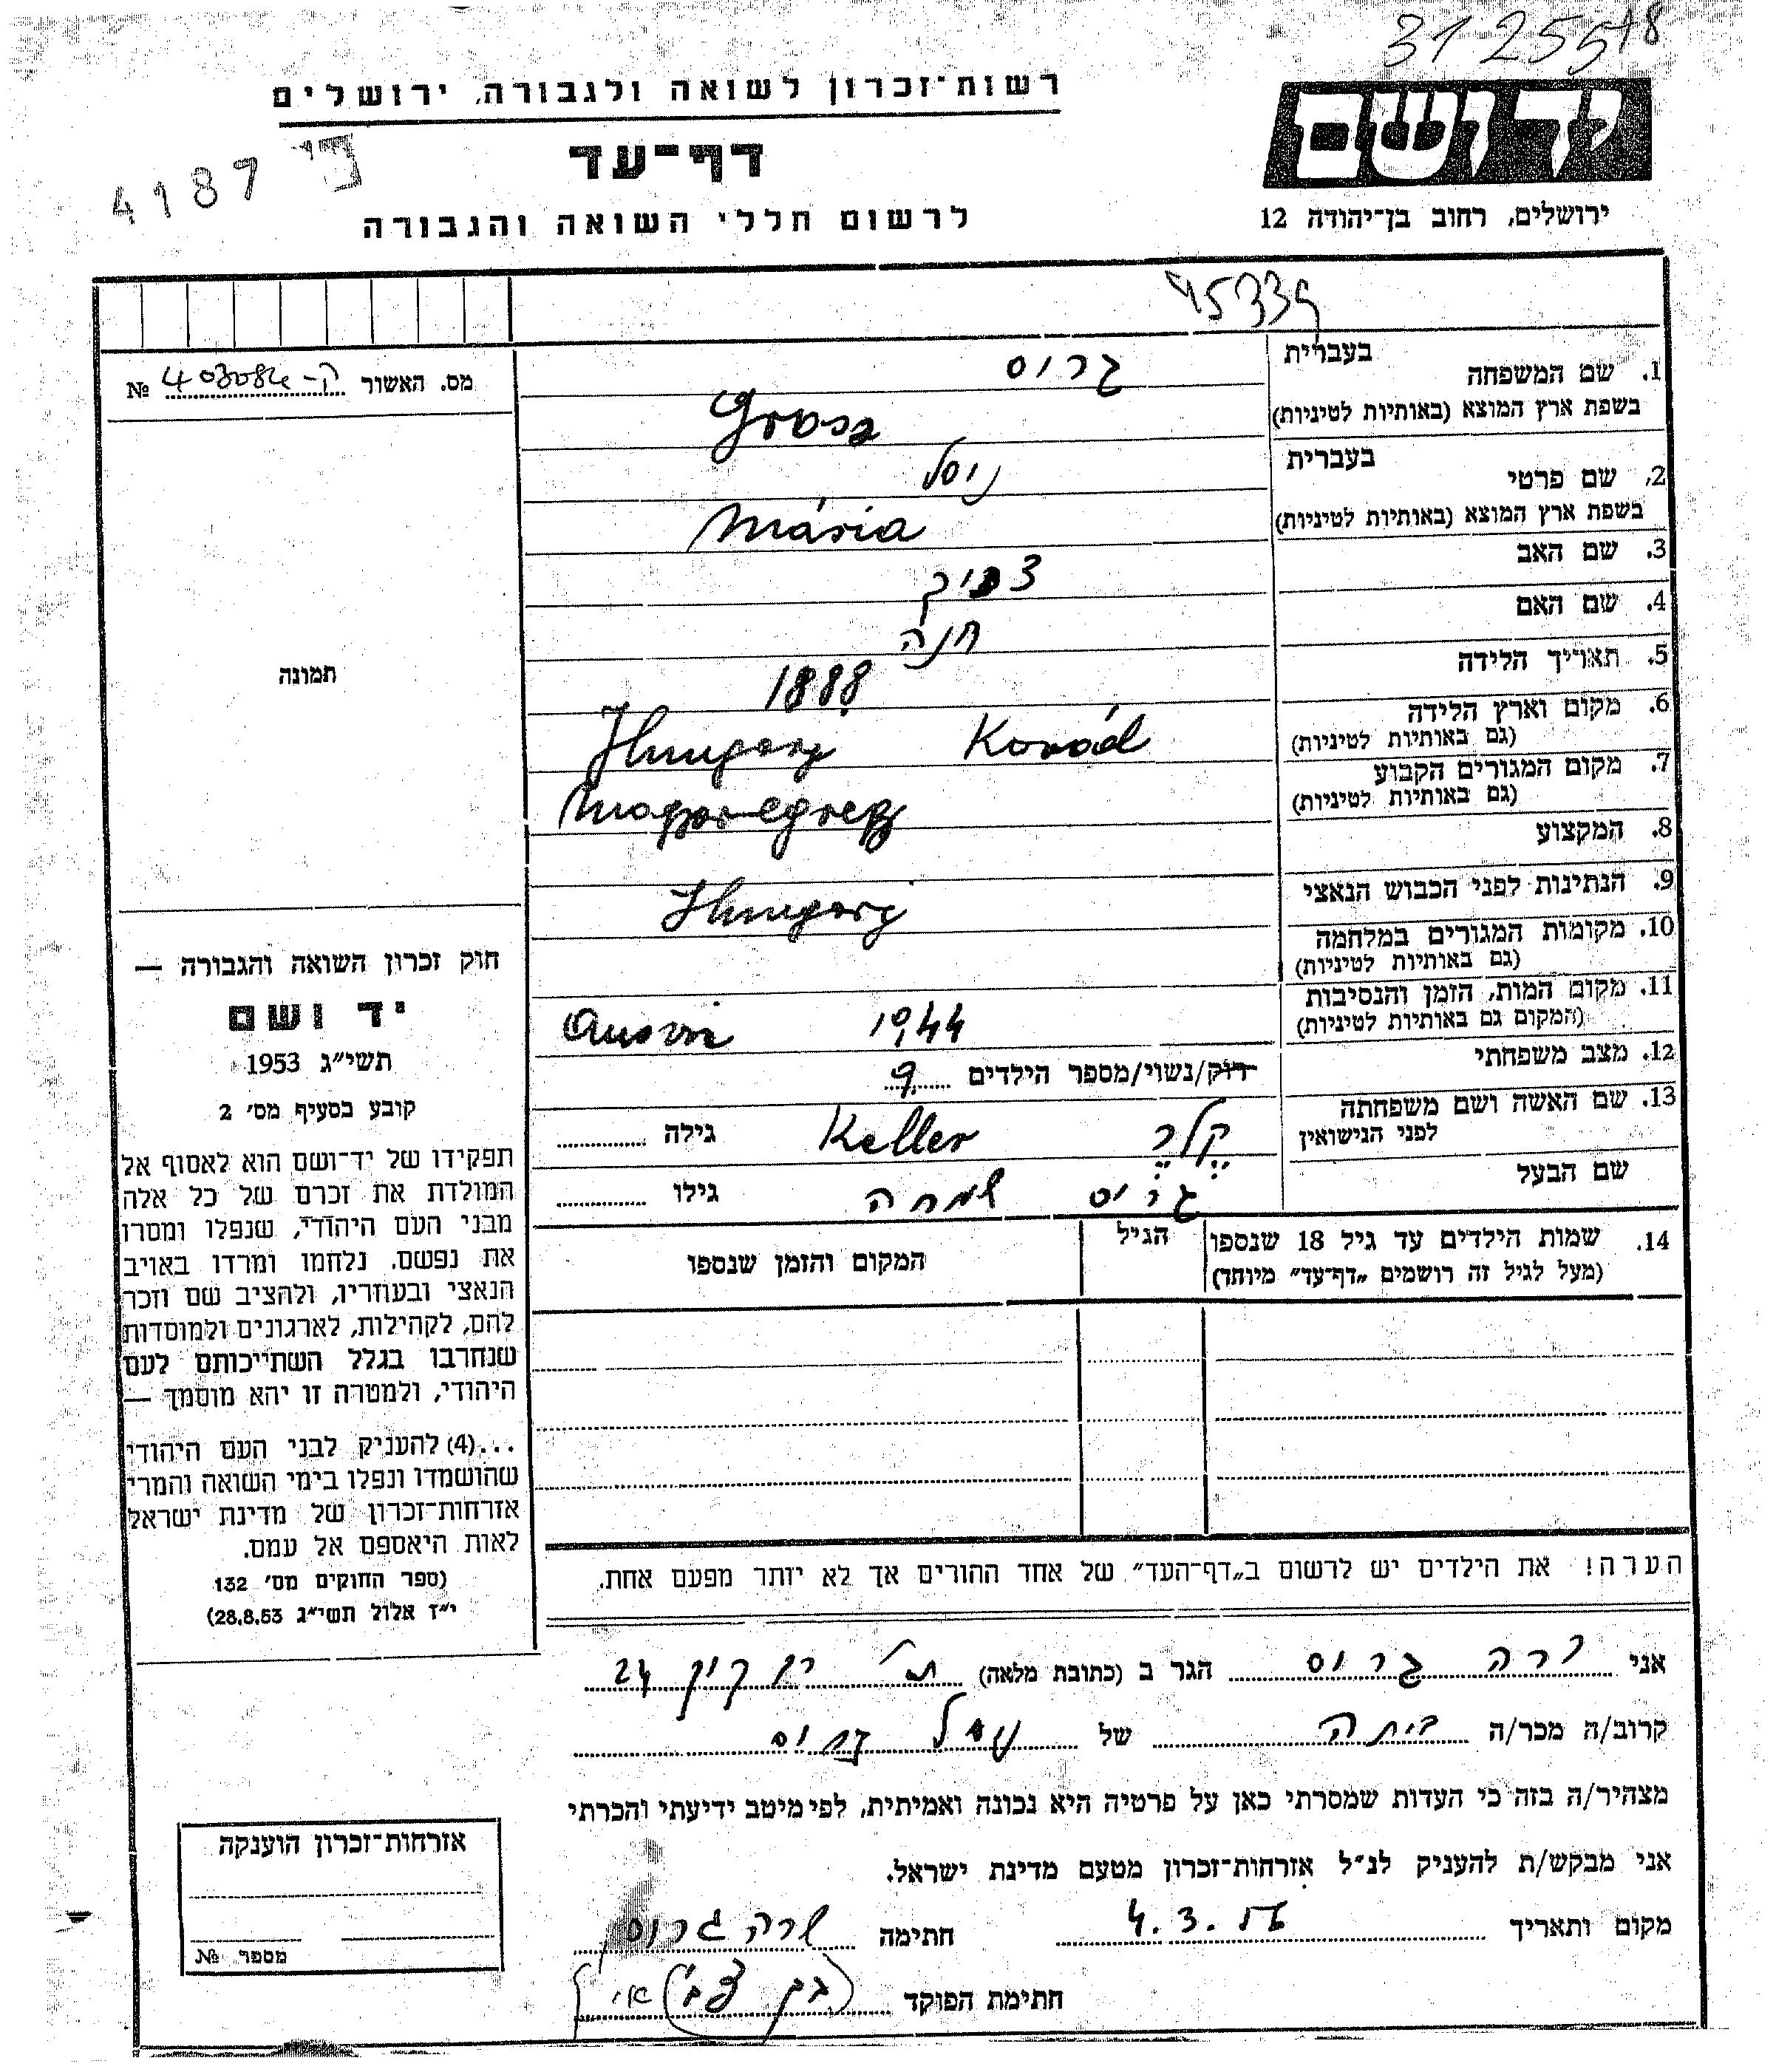 31255 18
רשות־זכרון לשואה ולגבורה, ירושלים
דף־עד
4187
לרשום חללי השואה והגבורה
ירושלים, רחוב בן־יהודה 12
45339
מס. האשור ק-403084 №
תמונה
1. שם המשפחה בעברית גרוס
בשפת ארץ המוצא (באותיות לטיניות) Grosz
2. שם פרטי בעברית
בשפת ארץ המוצא (באותיות לטיניות) Mária
3. שם האב
4. שם האם חנה
5. תאריך הלידה 1888
6. מקום וארץ הלידה
(גם באותיות לטיניות) Hungary
7. מקום המגורים הקבוע
(גם באותיות לטיניות) Magyaregregy
8. המקצוע
9. הנתינות לפני הכבוש הנאצי Hungary
10. מקומות המגורים במלחמה
(גם באותיות לטיניות)
11. מקום המות, הזמן והנסיבות
(המקום גם באותיות לטיניות) 1944
12. מצב משפחתי רוק/נשוי/מספר הילדים 9
13. שם האשה ושם משפחתה
לפני הנישואין קֶלֶר Keller גילה
שם הבעל גרוס שמחה גילו
14. שמות הילדים עד גיל 18 שנספו הגיל המקום והזמן שנספו
(מעל לגיל זה רושמים „דף־עד” מיוחד)
הערה! את הילדים יש לרשום ב„דף־העד” של אחד ההורים אך לא יותר מפעם אחת.
חוק זכרון השואה והגבורה —
יד ושם
תשי״ג 1953
קובע בסעיף מס׳ 2
תפקידו של יד־ושם הוא לאסוף אל
המולדת את זכרם של כל אלה
מבני העם היהודי, שנפלו ומסרו
את נפשם, נלחמו ומרדו באויב
הנאצי ובעוזריו, ולהציב שם וזכר
להם, לקהילות, לארגונים ולמוסדות
שנחרבו בגלל השתייכותם לעם
היהודי, ולמטרה זו יהא מוסמך —
...(4) להעניק לבני העם היהודי
שהושמדו ונפלו בימי השואה והמרי
אזרחות־זכרון של מדינת ישראל
לאות היאספם אל עמם.
(ספר החוקים מס׳ 132
י״ז אלול תשי״ג 28.8.53)
אני גרוס הגר ב (כתובת מלאה) 24
קרוב/ה מכר/ה ביתה של גרוס
מצהיר/ה בזה כי העדות שמסרתי כאן על פרטיה היא נכונה ואמיתית, לפי מיטב ידיעתי והכרתי
אני מבקש/ת להעניק לנ״ל אזרחות־זכרון מטעם מדינת ישראל.
מקום ותאריך 4.3.56 חתימה שרה גרוס
חתימת הפוקד
אזרחות־זכרון הוענקה
מספר №